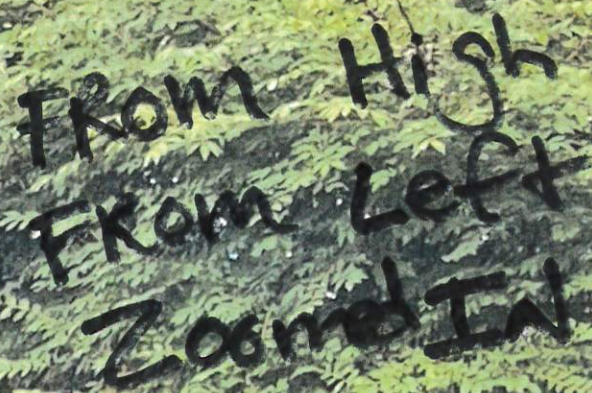 From High
From Left
Zoomed IN